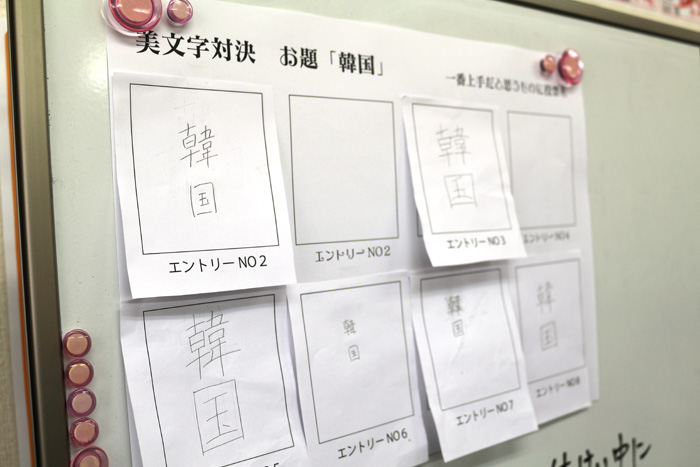 美文字対決 お題「韓国」
一番上手だと思うものに投票
韓国
エントリーNO2
エントリーNO2
韓国
エントリーNO3
エントリーNO4
韓国
韓国
エントリーNO6
韓国
エントリーNO7
韓国
エントリーNO8
中に